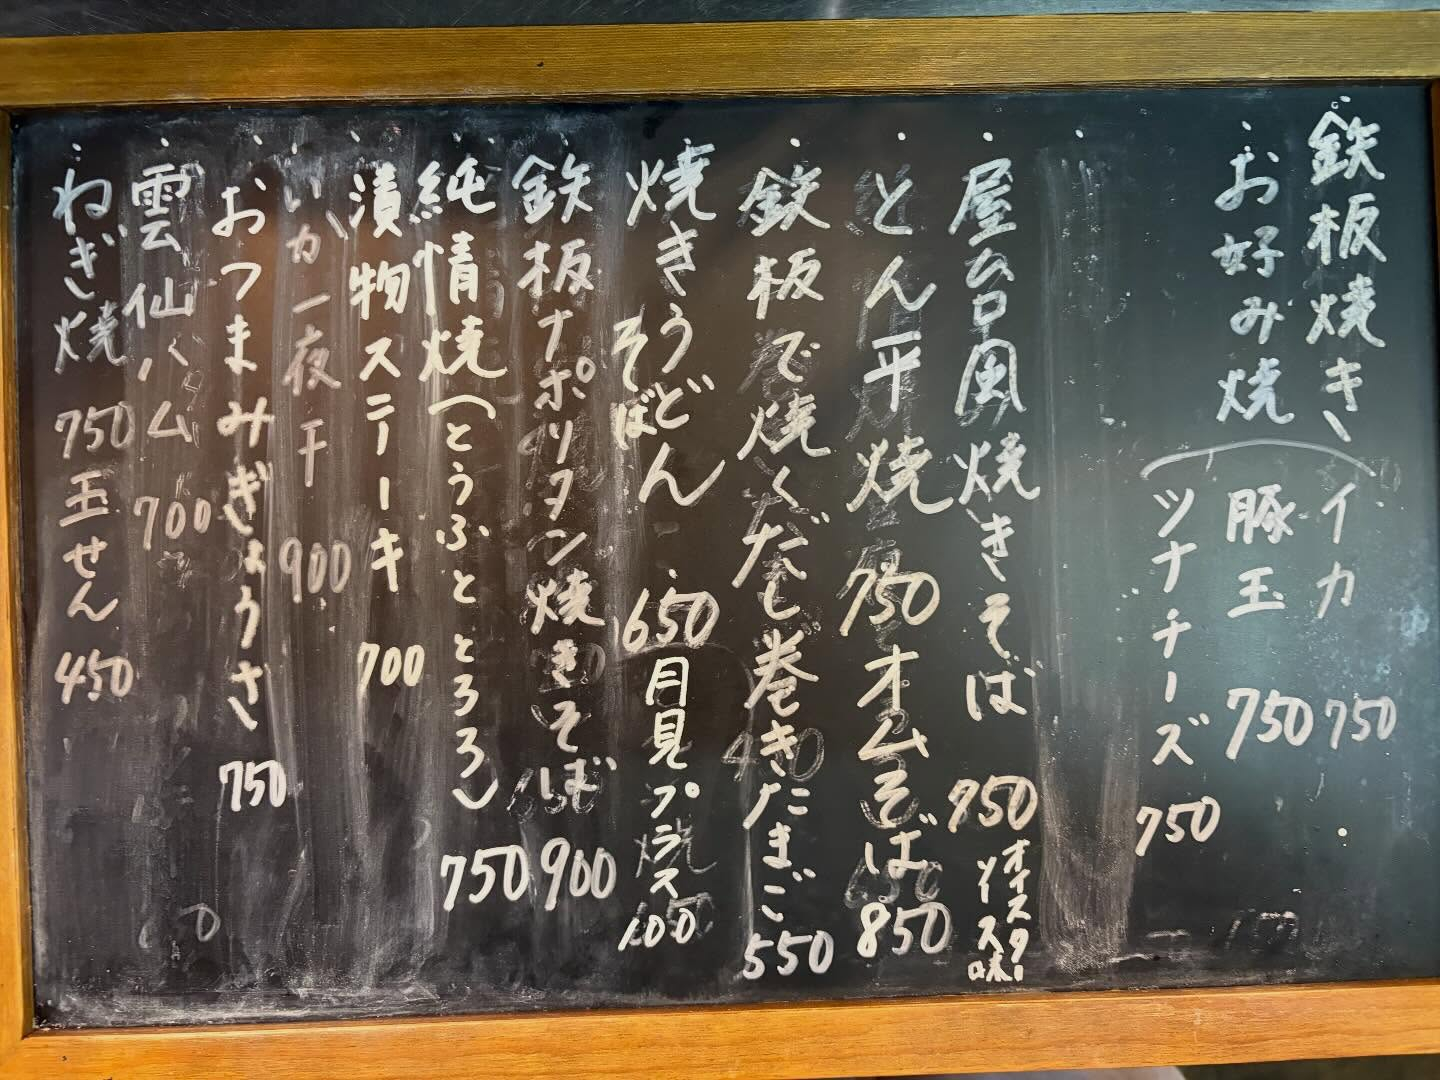 鉄板焼き
・お好み焼
イカ 750
豚玉 750
ツナチーズ 750
・屋台風焼きそば 750
オイスター
ソース味
・とん平焼 750 オムそば 850
・鉄板で焼くだし巻きたまご 550
・焼きうどん
そばん
・650 月見プラス 100
・鉄板ナポリタン焼きそば 900
・純情焼(とうふととろろ) 750
・漬物ステーキ 700
・いか一夜干 900
・おつまみぎょうざ 750
・雲仙ハム 700
・ねぎ焼 750 玉せん 450